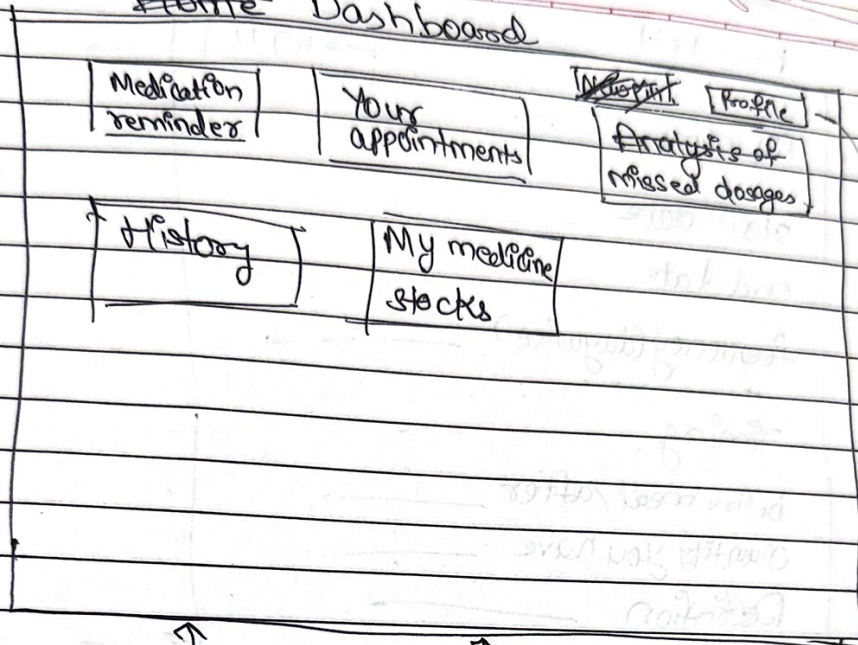 Home Dashboard
Medication
reminder
Your
appointments
Profile
Analysis of
missed dosages
History
My medicine
stocks